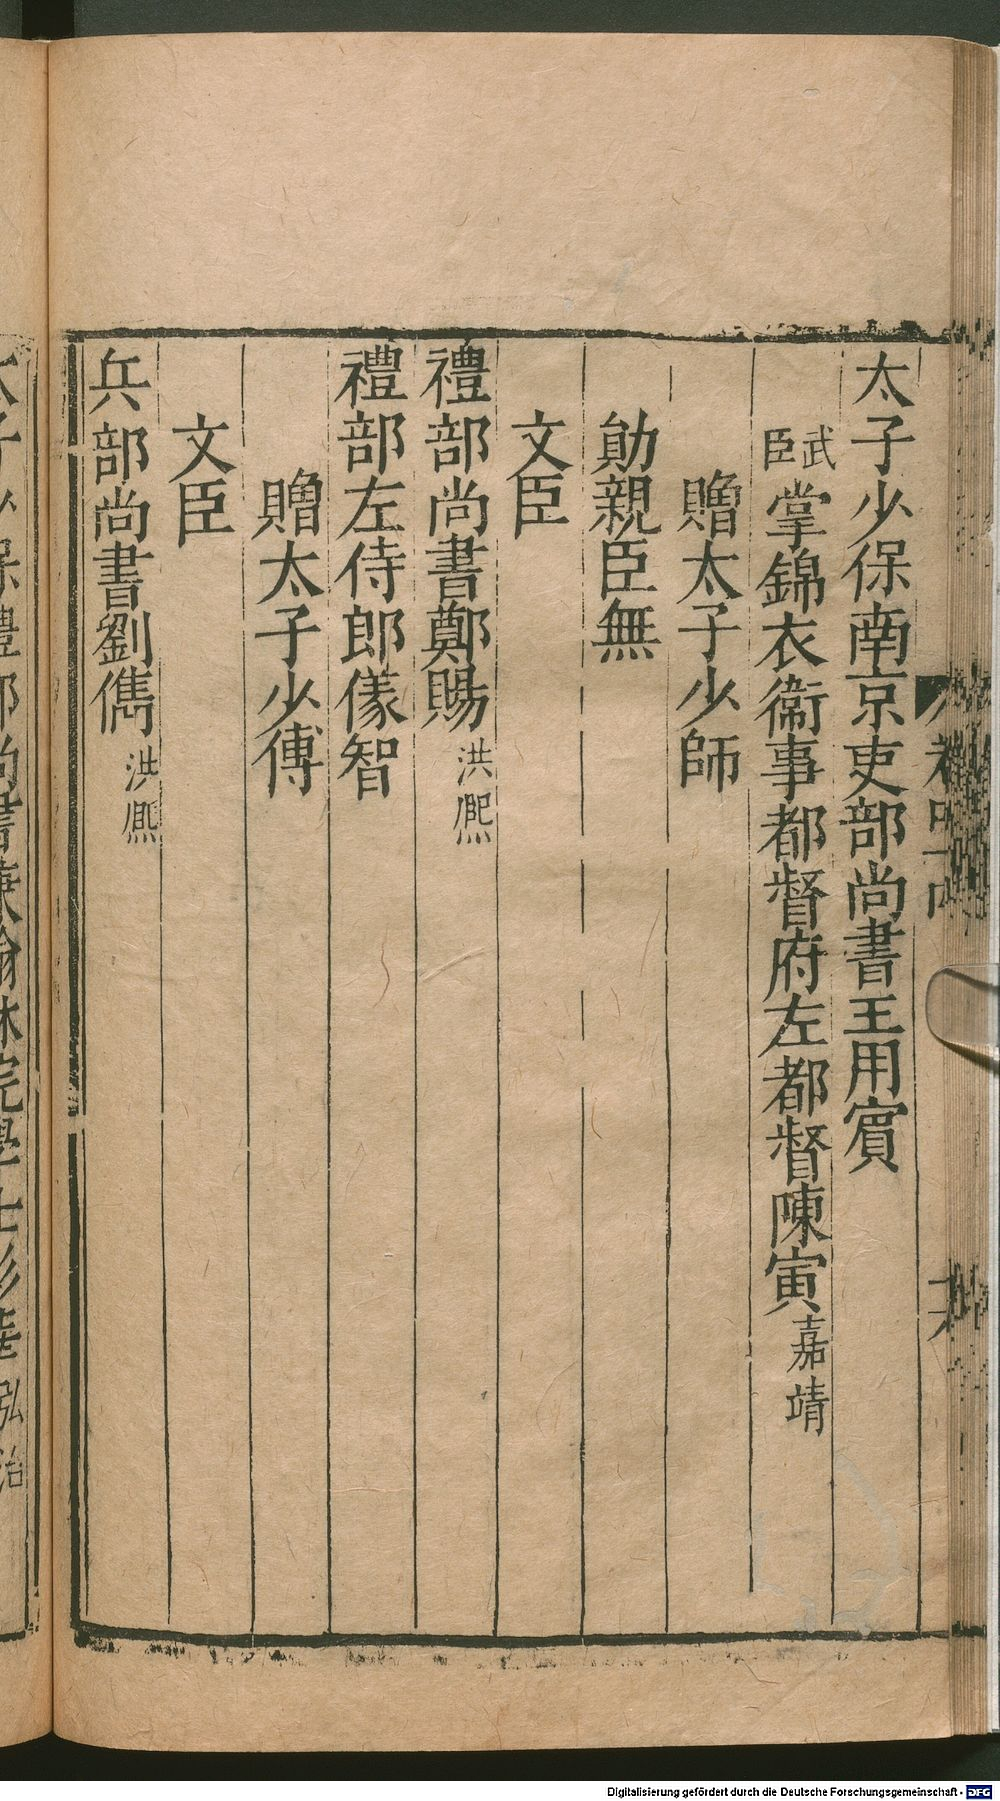 太子少保南京吏部尚書王用賔
武臣掌錦衣衞事都督府左都督陳寅嘉靖
贈太子少師
勛親臣無
文臣
禮部尚書鄭賜洪熈
禮部左侍郎儀智
贈太子少傅
文臣
兵部尚書劉儁洪熈
Digitalisierung gefördert durch die Deutsche Forschungsgemeinschaft - DFG